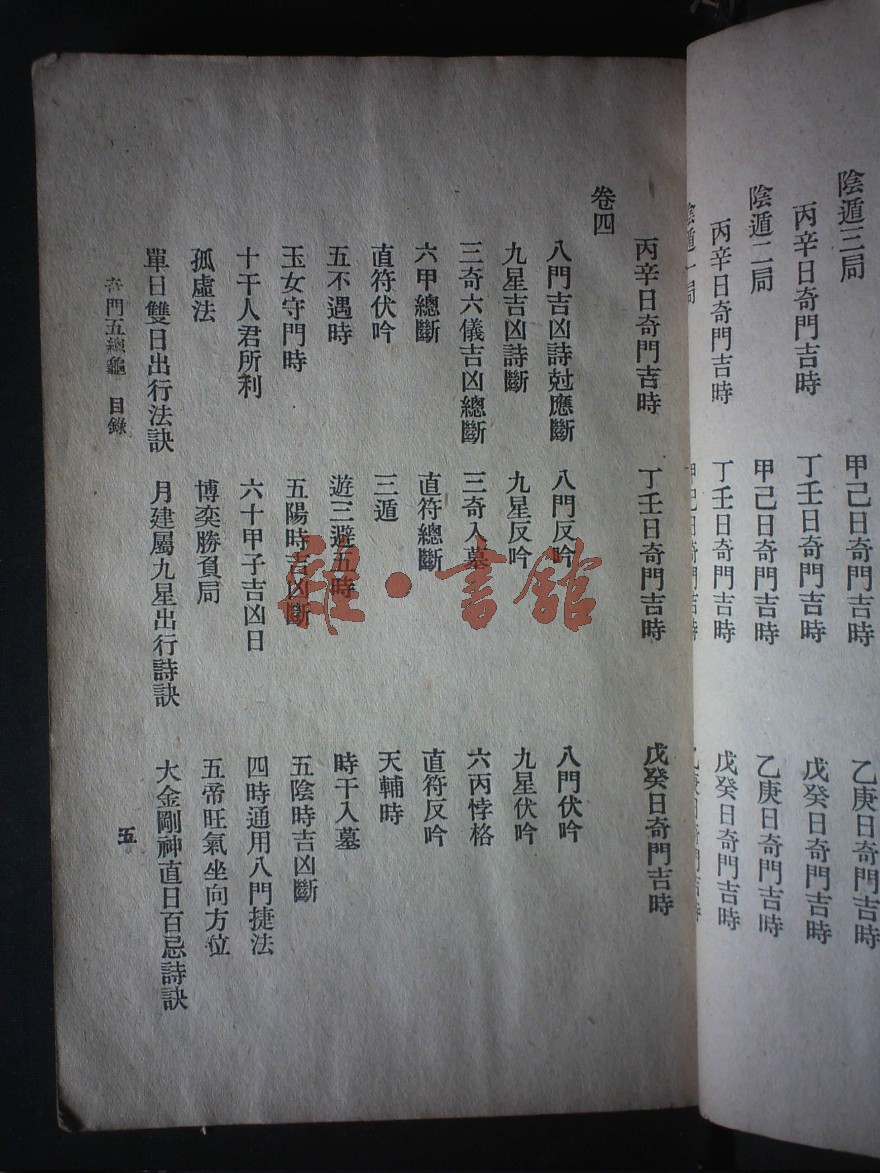 陰遁三局
甲己日奇門吉時
乙庚日奇門吉時
丙辛日奇門吉時
丁壬日奇門吉時
戊癸日奇門吉時
陰遁二局
甲己日奇門吉時
乙庚日奇門吉時
丙辛日奇門吉時
丁壬日奇門吉時
戊癸日奇門吉時
陰遁一局
甲己日奇門吉時
乙庚日奇門吉時
丙辛日奇門吉時
丁壬日奇門吉時
戊癸日奇門吉時
卷四
八門吉凶詩尅應斷
八門反吟
八門伏吟
九星吉凶詩斷
九星反吟
九星伏吟
三奇六儀吉凶總斷
三奇入墓
六丙悖格
六甲總斷
直符總斷
直符反吟
直符伏吟
三遁
天輔時
五不遇時
遊三避五時
時干入墓
玉女守門時
五陽時吉凶斷
五陰時吉凶斷
十干人君所利
六十甲子吉凶日
四時通用八門捷法
孤虛法
博奕勝負局
五帝旺氣坐向方位
單日雙日出行法訣
月建屬九星出行詩訣
大金剛神直日百忌詩訣
奇門五總龜 目錄
五
書館